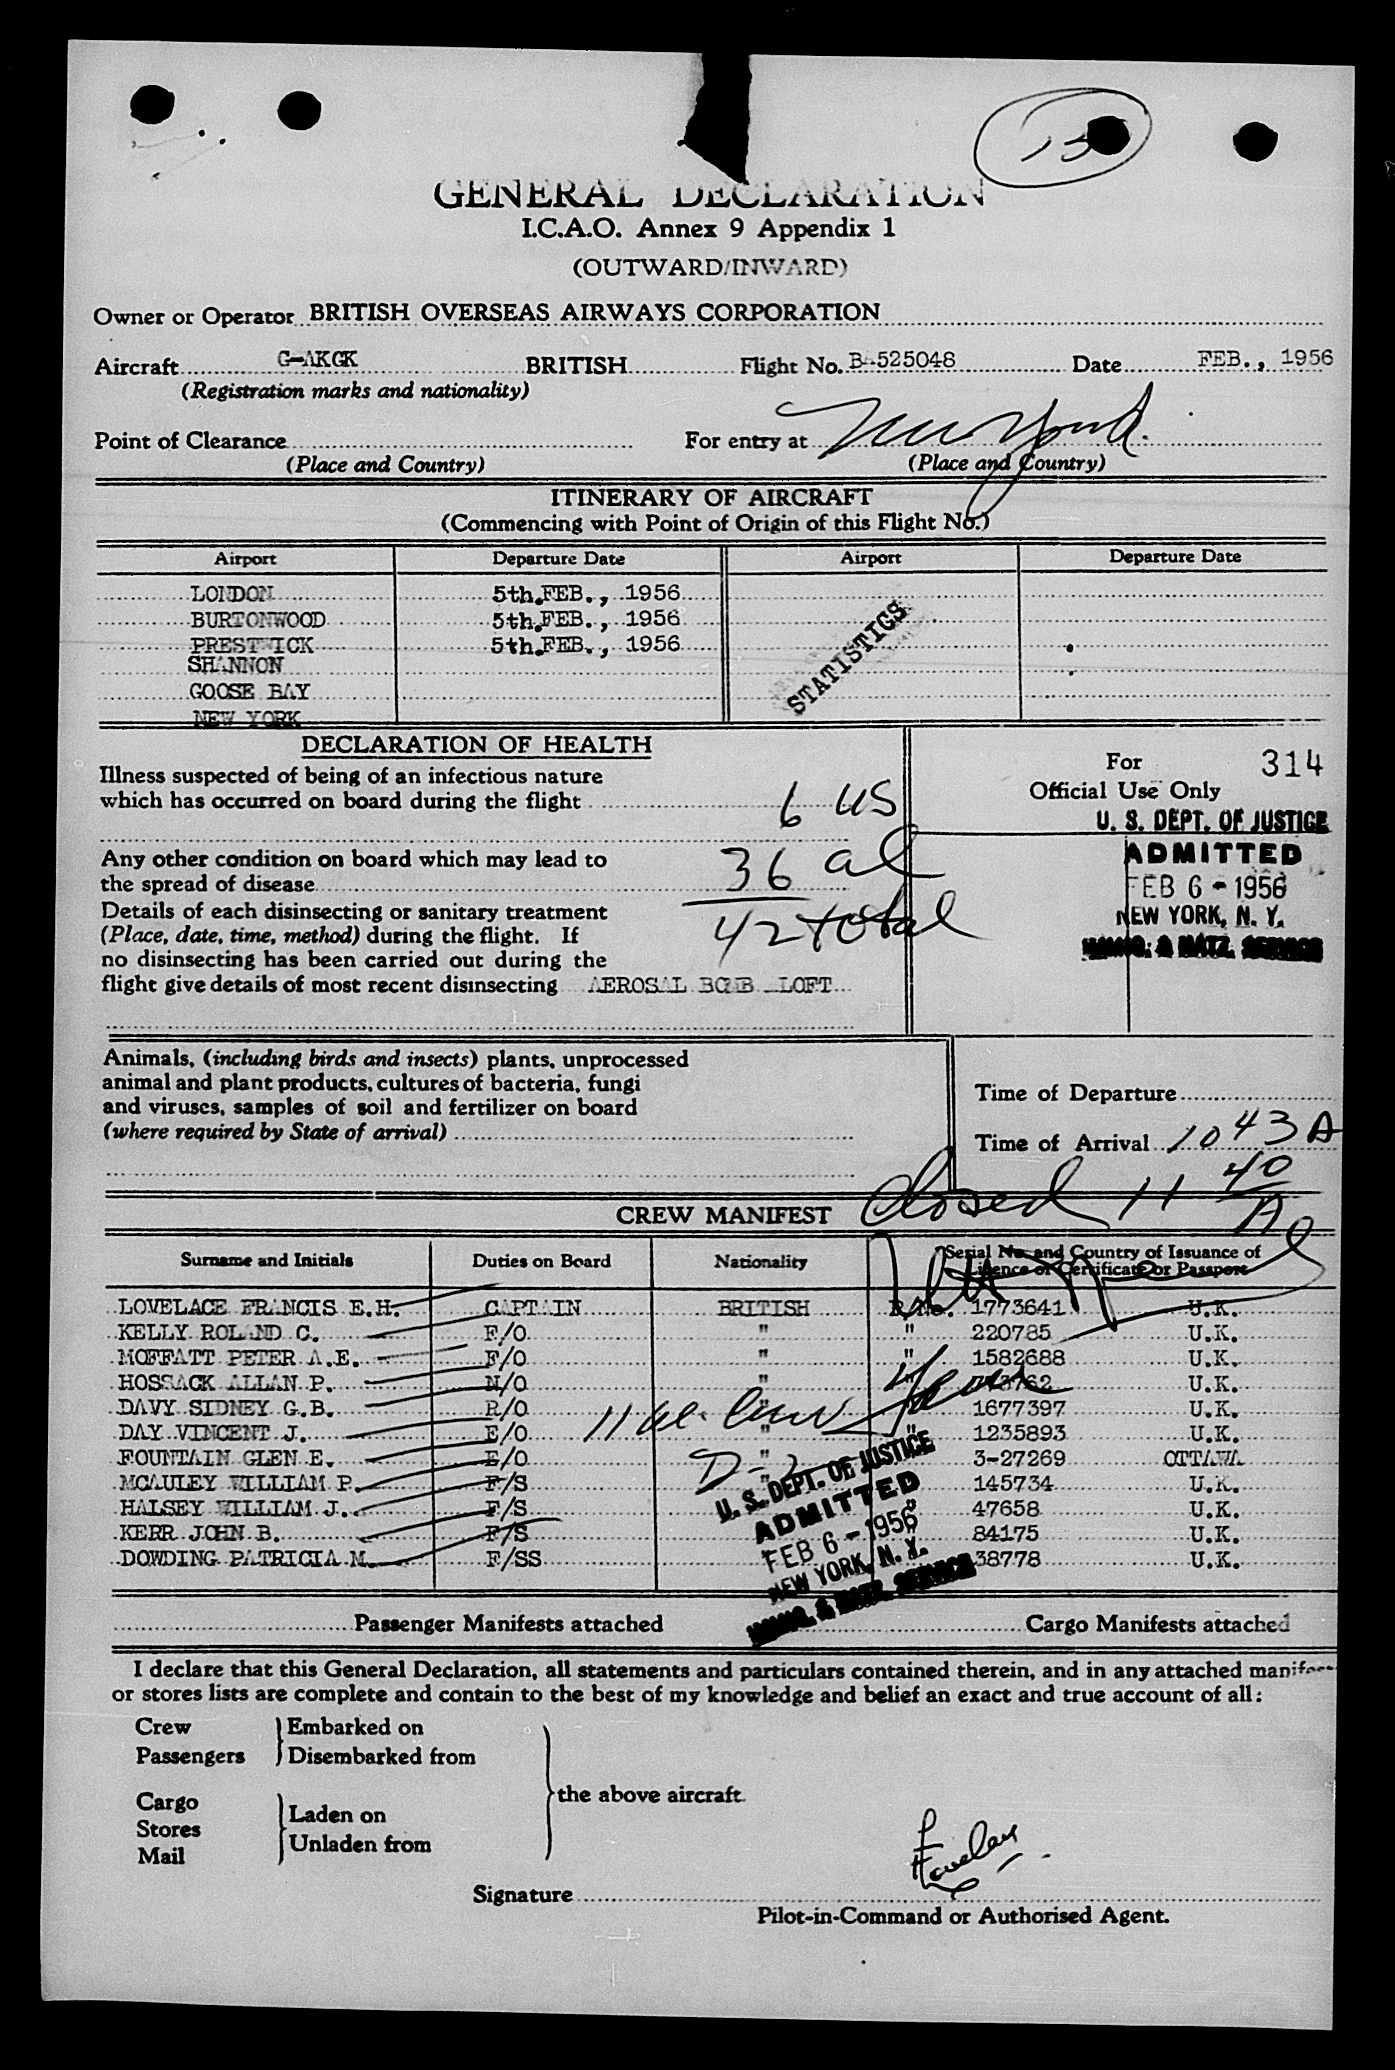 13
GENERAL DECLARATION
I.C.A.O. Annex 9 Appendix 1
(OUTWARD/INWARD)
Owner or Operator BRITISH OVERSEAS AIRWAYS CORPORATION
Aircraft G-AKGK BRITISH Flight No. BA-525048 Date FEB., 1956
(Registration marks and nationality)
Point of Clearance For entry at New York.
(Place and Country) (Place and Country)
ITINERARY OF AIRCRAFT
(Commencing with Point of Origin of this Flight No.)
Airport Departure Date Airport Departure Date
LONDON 5th.FEB., 1956
BURTONWOOD 5th.FEB., 1956
PRESTWICK 5th.FEB., 1956
SHANNON
GOOSE BAY
NEW YORK
STATISTICS
DECLARATION OF HEALTH
Illness suspected of being of an infectious nature
which has occurred on board during the flight 6 US
Any other condition on board which may lead to
the spread of disease 36 al
Details of each disinsecting or sanitary treatment
(Place, date, time, method) during the flight. If 42 total
no disinsecting has been carried out during the
flight give details of most recent disinsecting AEROSAL BOMB LOFT
For 314
Official Use Only
U. S. DEPT. OF JUSTICE
ADMITTED
FEB 6 - 1956
NEW YORK, N. Y.
IMMIG. & NATZ. SERVICE
Animals, (including birds and insects) plants, unprocessed
animal and plant products, cultures of bacteria, fungi
and viruses, samples of soil and fertilizer on board
(where required by State of arrival)
Time of Departure
Time of Arrival 10 43 A
Closed 11 40 A
CREW MANIFEST
Surname and Initials Duties on Board Nationality Serial No. and Country of Issuance of
Licence or Certificate or Passport
LOVELACE FRANCIS E.H. CAPTAIN BRITISH P.No. 1773641 U.K.
KELLY ROLAND C. F/O " " 220785 U.K.
MOFFATT PETER A.E. F/O " " 1582688 U.K.
HOSSACK ALLAN P. N/O " U.K.
DAVY SIDNEY G.B. R/O " 1677397 U.K.
DAY VINCENT J. E/O " " 1235893 U.K.
FOUNTAIN GLEN E. E/O " 3-27269 OTTAWA
MCAULEY WILLIAM P. F/S " 145734 U.K.
HALSEY WILLIAM J. F/S " 47658 U.K.
KERR JOHN B. F/S 84175 U.K.
DOWDING PATRICIA M. F/SS 38778 U.K.
11 al. crew
D-2
U. S. DEPT. OF JUSTICE
ADMITTED
FEB 6 - 1956
NEW YORK, N. Y.
IMMIG. & NATZ. SERVICE
Passenger Manifests attached Cargo Manifests attached
I declare that this General Declaration, all statements and particulars contained therein, and in any attached manifest
or stores lists are complete and contain to the best of my knowledge and belief an exact and true account of all:
Crew Embarked on
Passengers Disembarked from
the above aircraft.
Cargo
Stores Laden on
Mail Unladen from
Lovelace
Signature
Pilot-in-Command or Authorised Agent.